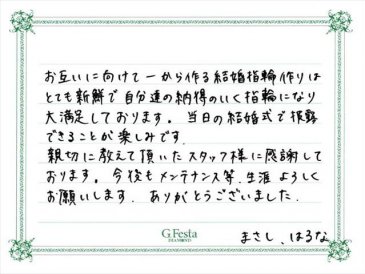 お互いに向けて一から作る結婚指輪作りは
とても新鮮で自分達の納得のいく指輪になり
大満足しております。当日の結婚式で披露
できることが楽しみです.
親切に教えて頂いたスタッフ様に感謝して
おります。今後もメンテナンス等.生涯よろしく
お願いします. ありがとうございました.
G.Festa
DIAMOND
まさし、はるな